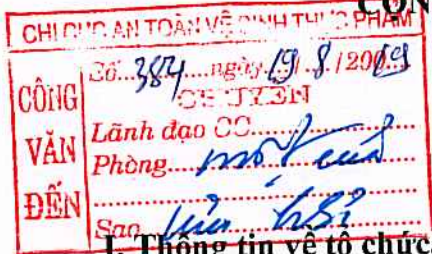 CỘN
CHI CỤC AN TOÀN VỆ SINH THỰC PHẨM
CÔNG VĂN ĐẾN
Số 384 ngày 19/8/2019
CHUYỂN
Lãnh đạo CC
Phòng một cửa
Sao lưu hồ sơ
I. Thông tin về tổ chức